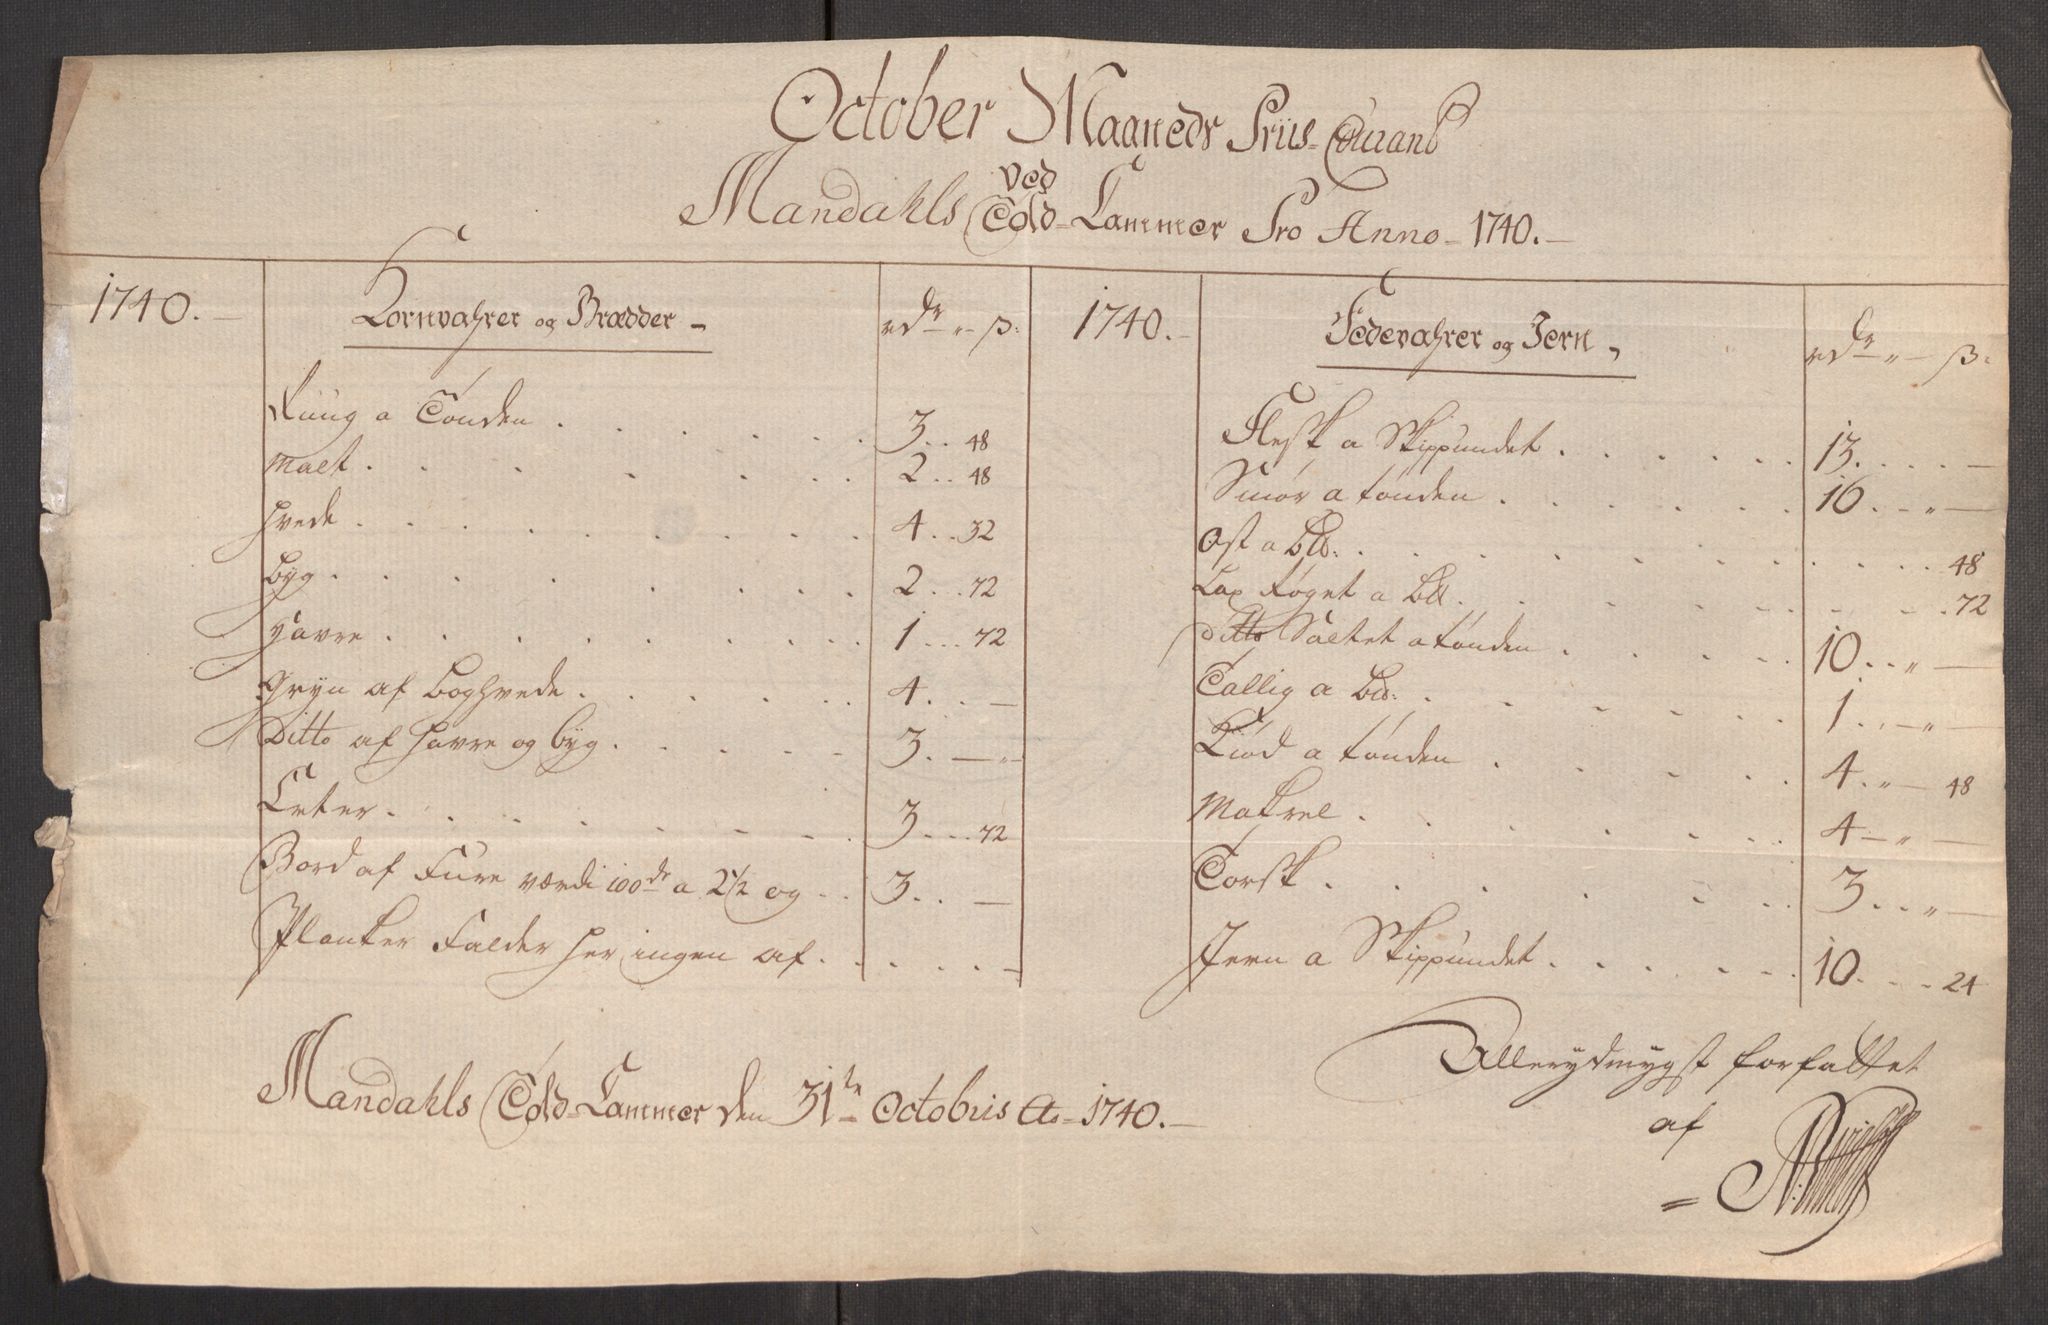 October Maaneds Priis-Courant
ved
Mandahls Told-Cammer Pro Anno 1740.
1740.
Kornvahrer og Brædder
rdr ß:
Ruug a Tønden 3 48
Malt 2 48
Hvede 4 32
Byg 2 72
Havre 1 72
Gryn af Boghvede 4
Ditto af Havre og Byg 3
Erter 3 72
Bord af Fure værdi 100de a 2 1/2 og 3
Planker Falder her ingen af
1740.
Fedevahrer og Jern
rdr ß:
Flesk a Skippundet 13
Smør a tønden 16
Ost a Lb: 48
Lax røget a Lb 72
Ditto Saltet a tønden 10
Tallig a Lb: 1
Kiød a tønden 4 48
Makrel 4
Torsk 3
Jern a Skippundet 10 24
Mandahls Told-Cammer den 31te Octobris Ao 1740.
Allerydmygst forfattet
af